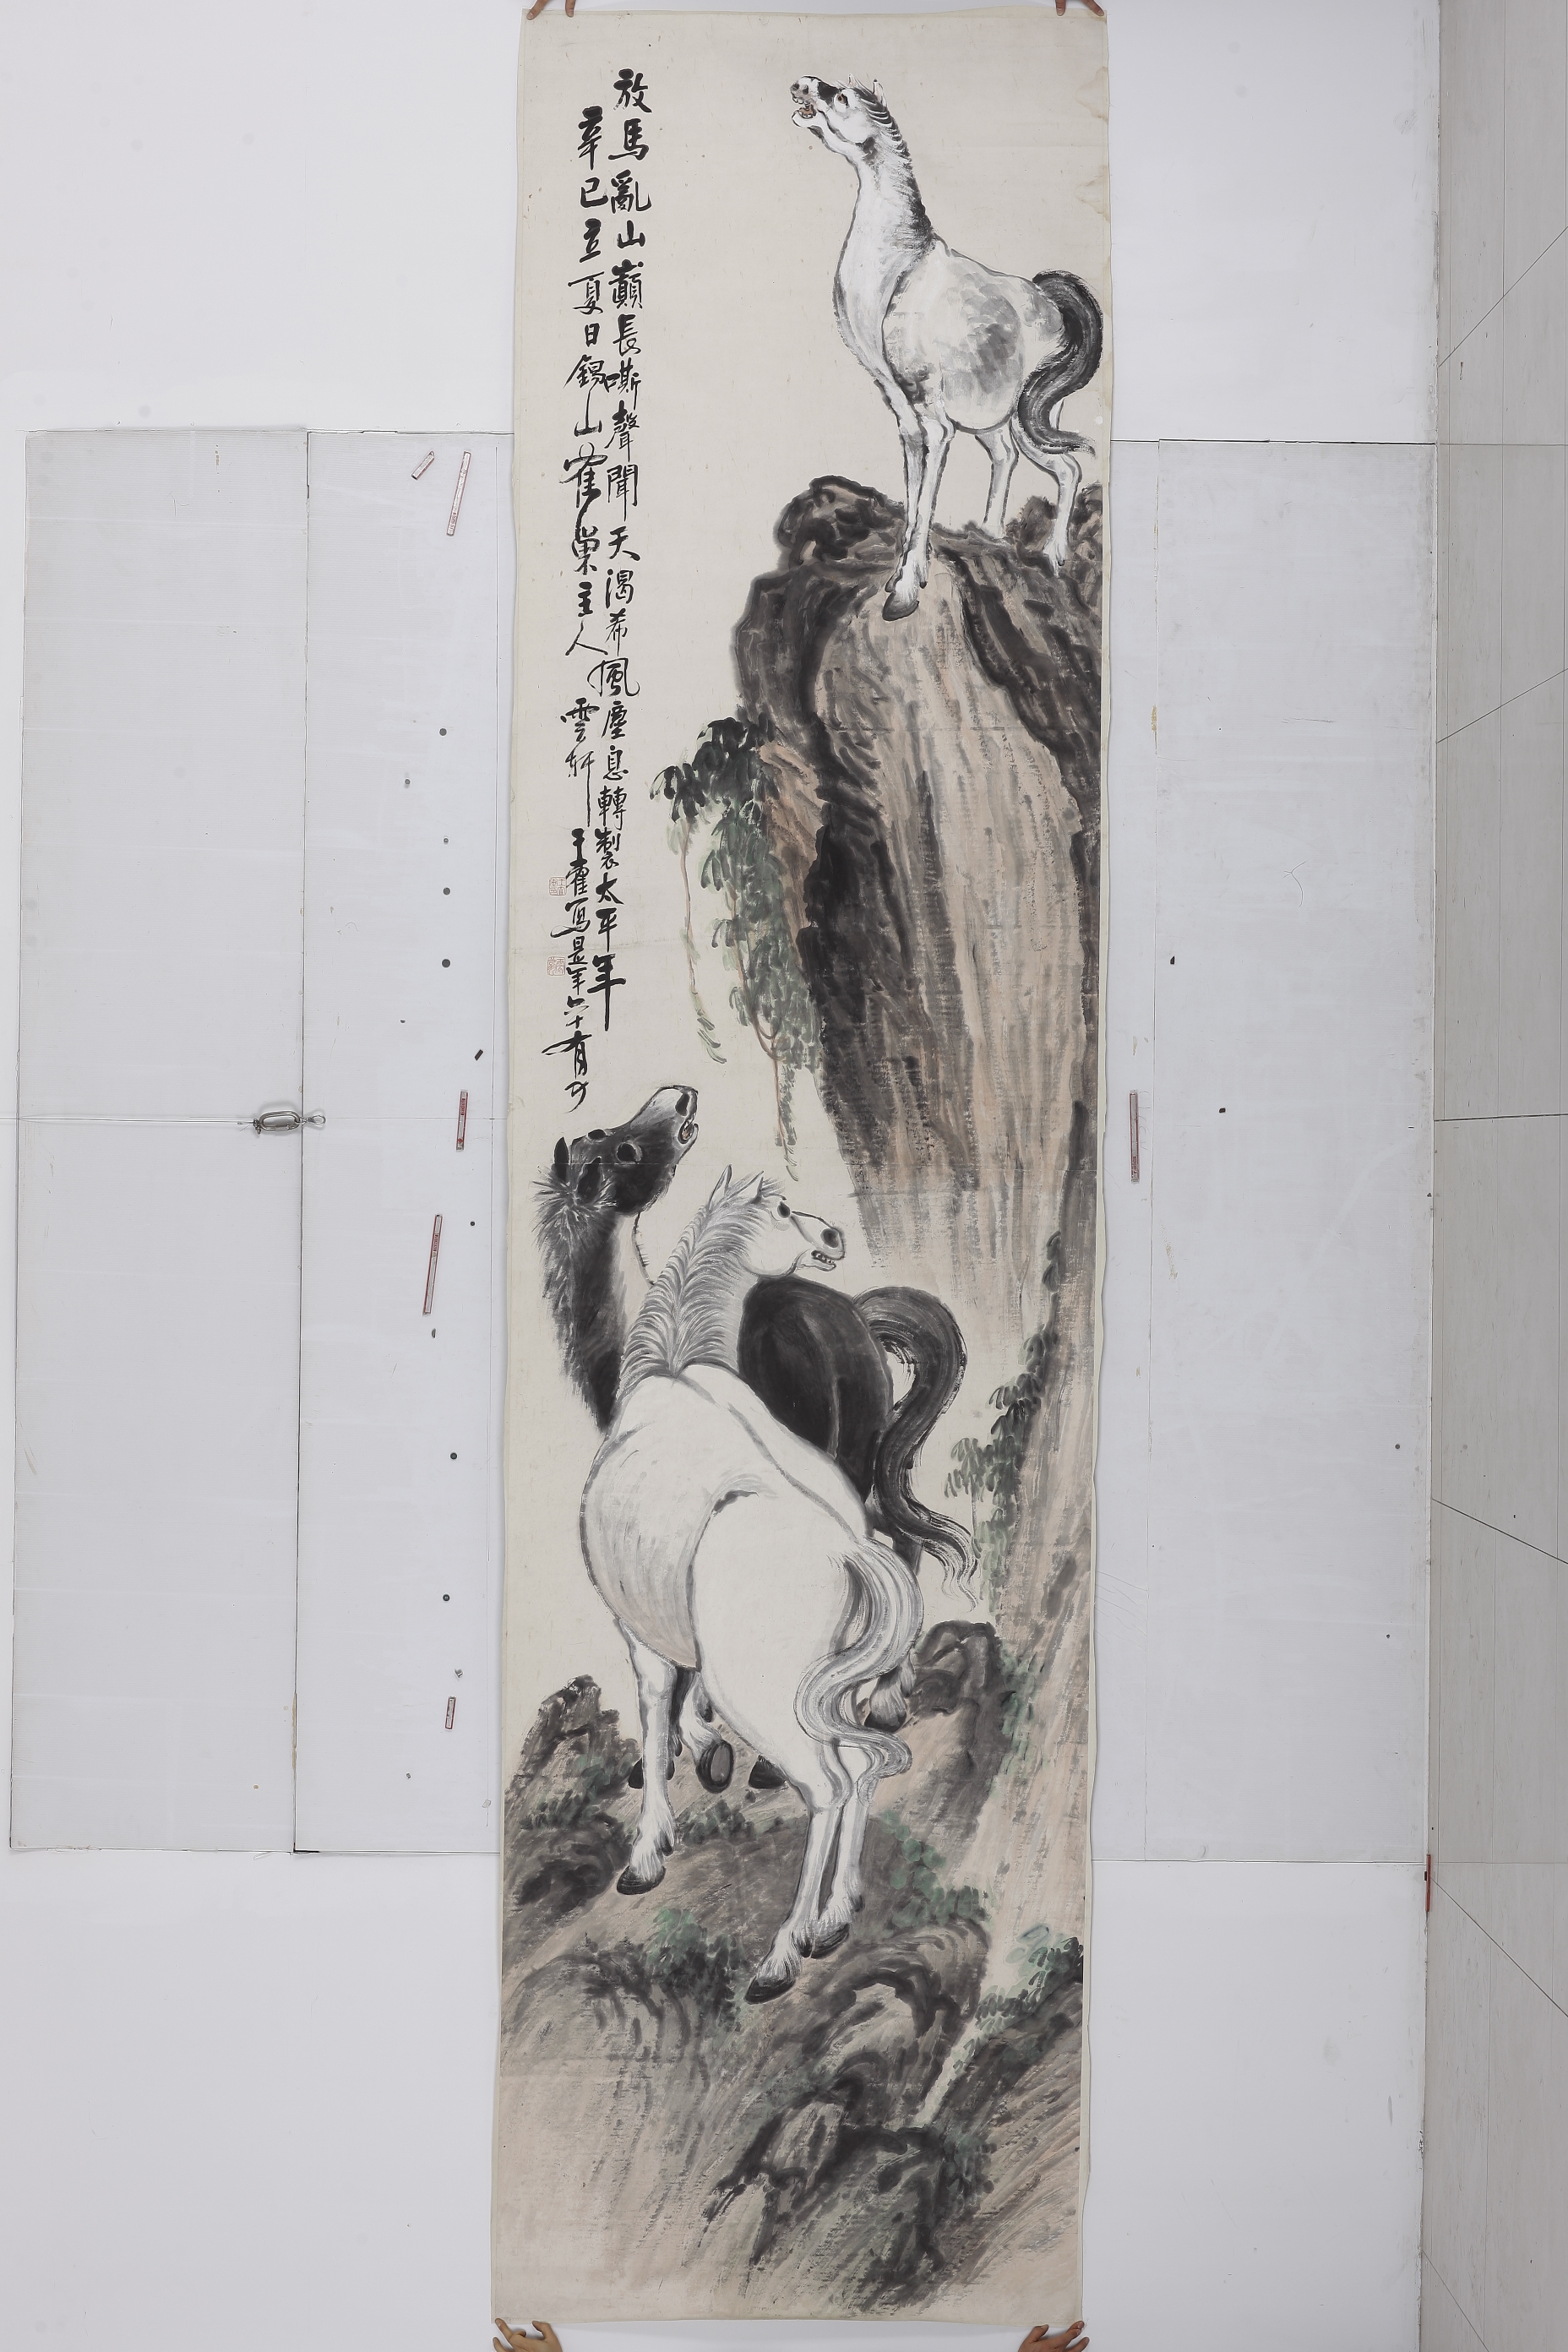 放馬亂山巔長嘶聲聞天渴希風塵息轉製太平年
辛巳立夏日錫山寉巢主人雲軒王霍寫是年六十有